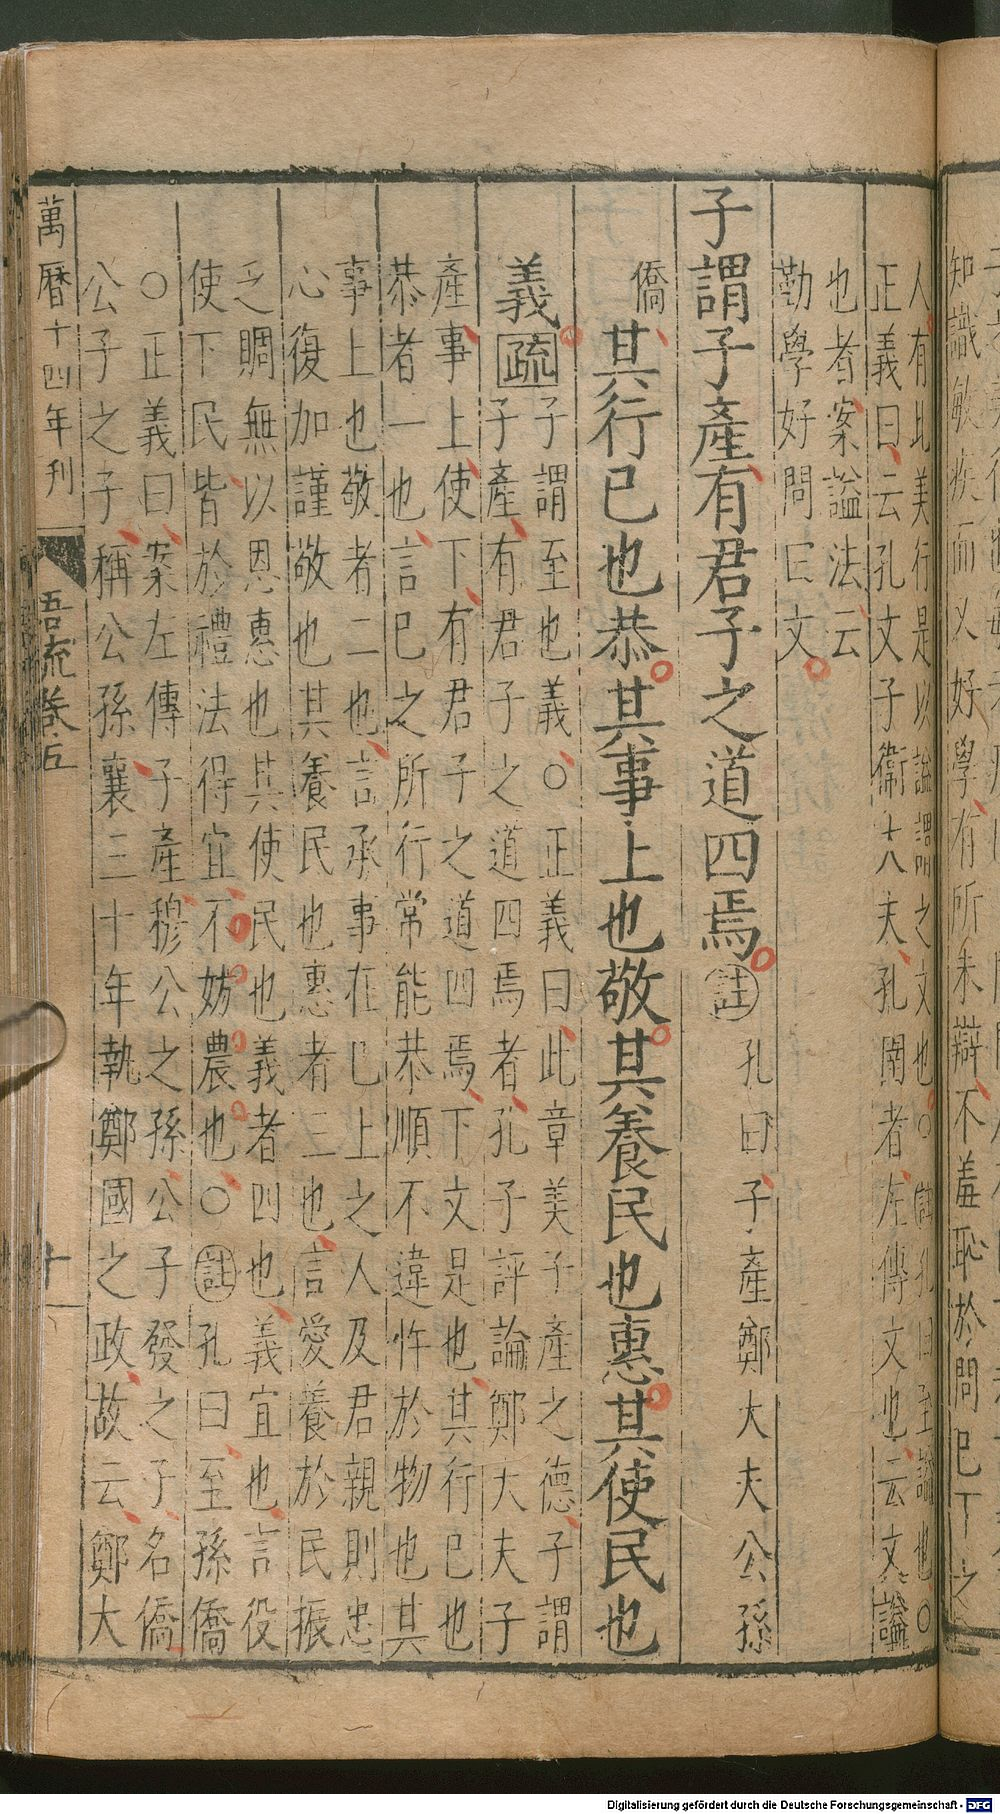 知識敏疾而又好學有所未辯不羞恥於問己下之
人有此美行是以諡謂之文也○註孔曰至諡也○
正義曰云孔文子衛大夫孔圉者左傳文也云文諡
也者案諡法云
勤學好問曰文
子謂子產有君子之道四焉註孔曰子產鄭大夫公孫
僑其行已也恭其事上也敬其養民也惠其使民也
義疏子謂至也義○正義曰此章美子產之德子謂
子產有君子之道四焉者孔子評論鄭大夫子
產事上使下有君子之道四焉下文是也其行已也
恭者一也言已之所行常能恭順不違忤於物也其
事上也敬者二也言承事在已上之人及君親則忠
心復加謹敬也其養民也惠者三也言愛養於民振
乏賙無以恩惠也其使民也義者四也義宜也言役
使下民皆於禮法得宜不妨農也○註孔曰至孫僑
○正義曰案左傳子產穆公之孫公子發之子名僑
公子之子稱公孫襄三十年執鄭國之政故云鄭大
萬曆十四年刊 吾疏卷五 十
Digitalisierung gefördert durch die Deutsche Forschungsgemeinschaft - DFG